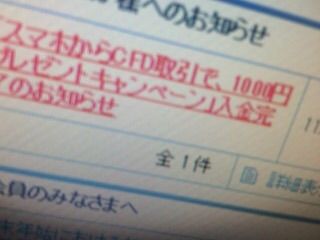 様へのお知らせ
「スマホからCFD取引で、1000円
プレゼントキャンペーン」入金完
了のお知らせ
11
全1件
詳細表
会員のみなさまへ
末年始における